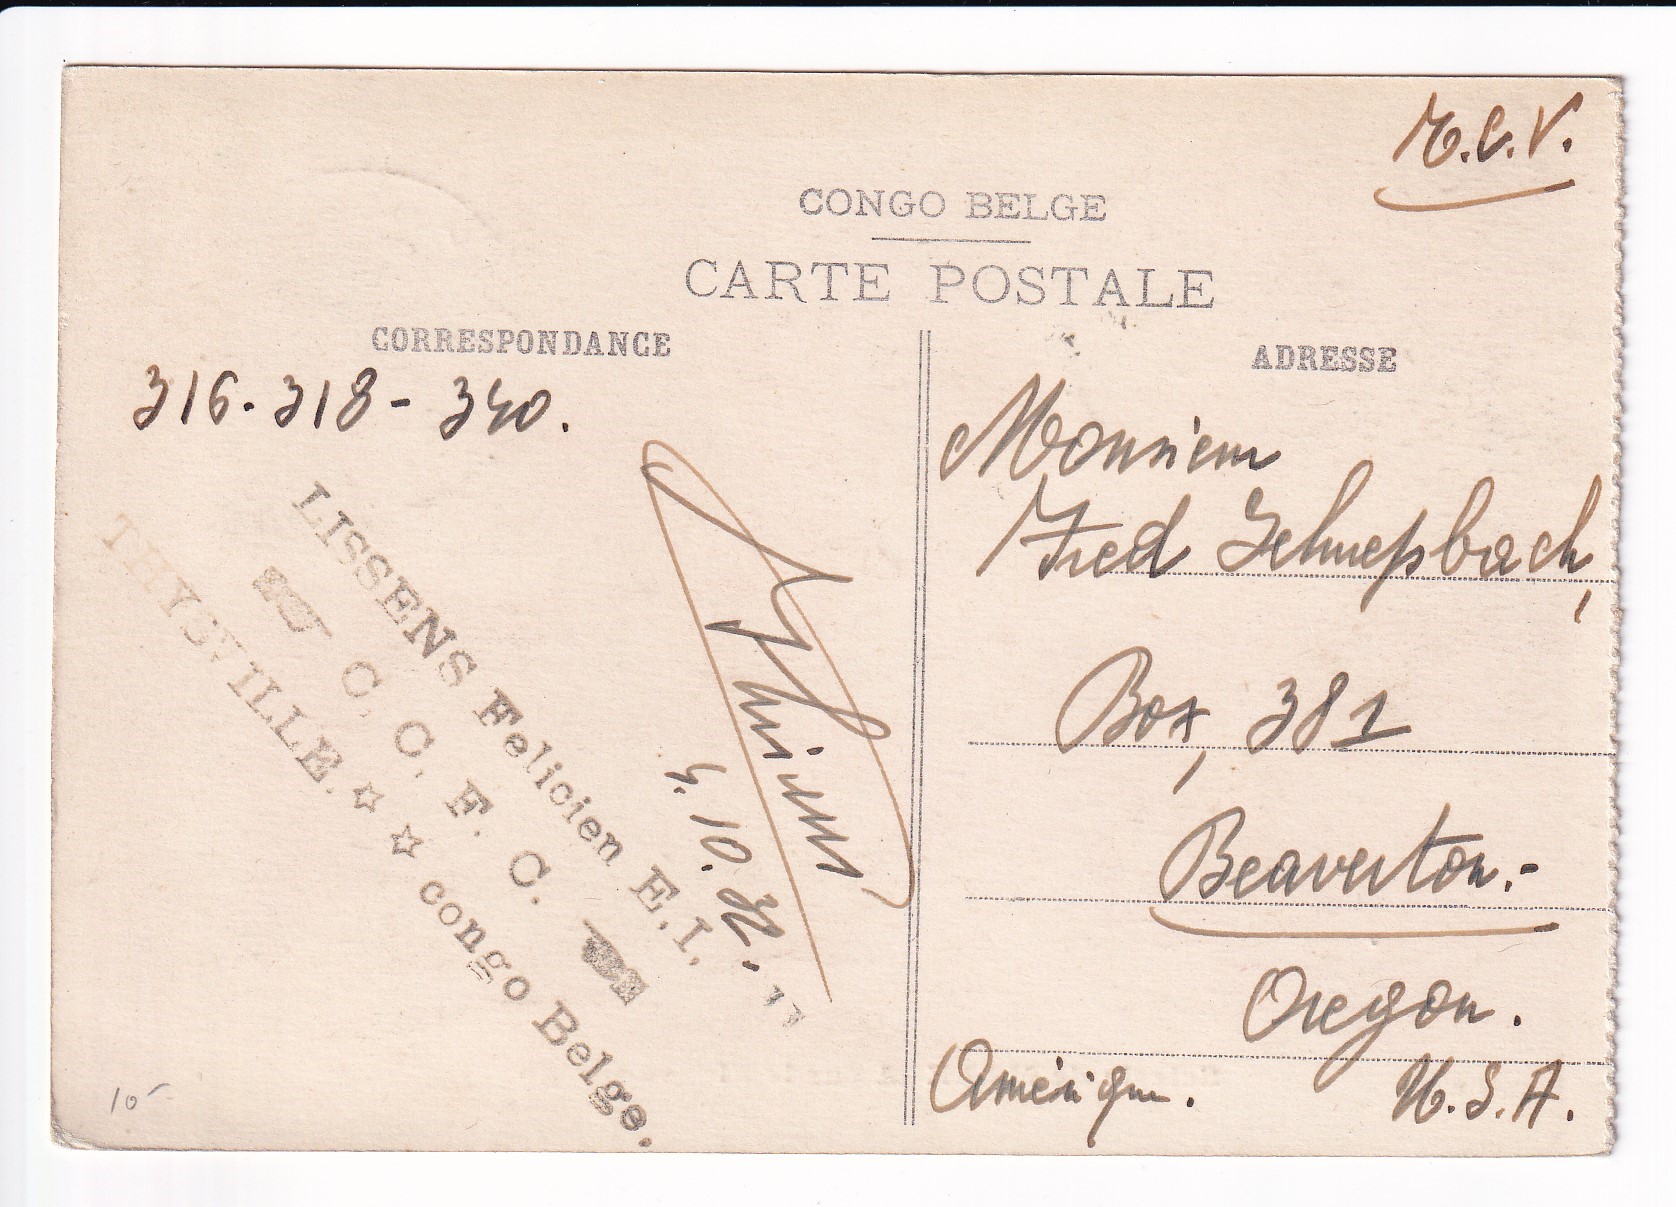 T.C.V.
CONGO BELGE
CARTE POSTALE
CORRESPONDANCE
ADRESSE
316. 318 - 340.
LISSENS Felicien E.I.
C. C. F. C.
THYSVILLE.
congo Belge.
10. 32.
Monsieur
Fred Schnepsbach,
Box, 381
Beaverton.-
Oregon.
Amérique. U.S.A.
10